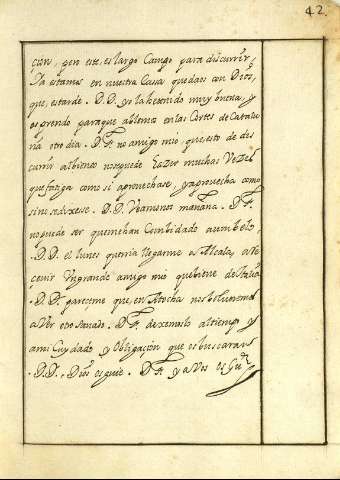 42.
cion, pero este, es largo Campo para discurrir
Ya estamos en nuestra Casa quedaos con Dios,
que, es tarde. D.D. yo la he tenido muy buena, y
os prendo para que ablemos en las Cortes de Catalu
ña otro dia. D.P. no amigo mio, que esto de dis
currir al biento nos puede hazer muchas Vezes
que fatiga como si aprovechase, y aprovecha como
sino se dixese. D.D. Veamonos mañana. D.P.
no puede ser que me han Combidado a un belo
. D.D. el lunes queria llegarme a Alcala, a Re
cevir Un grande amigo mio que biene de Italia
. D.P. pareceme que, en Atocha nos bolveremos
a Ver otro Savado. D.P. dexemoslo al tiempo y
a mi Cuydado y Obligacion que os buscara
. D.D. Dios os guie. D.P. y a Vos os Gu.e